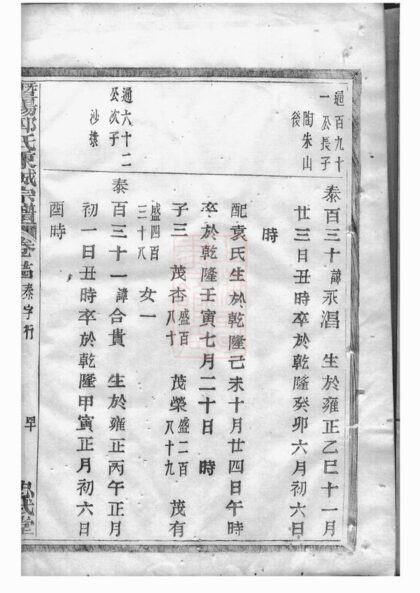 通百九十
一公長子
陶朱山
後
泰百三十諱永淐 生於雍正乙巳十一月
廿三日丑時卒於乾隆癸卯六月初六日
時
配袁氏生於乾隆己未十月廿四日午時
卒於乾隆壬寅七月二十日 時
子三 茂杏盛百八十 茂榮盛二百八十九 茂有
盛四百三十八 女一
通六十二
公次子
沙塳
泰百三十一諱合貴 生於雍正丙午正月
初一日丑時卒於乾隆甲寅正月初六日
酉時
暨陽邱氏東城宗譜 卷 泰字行